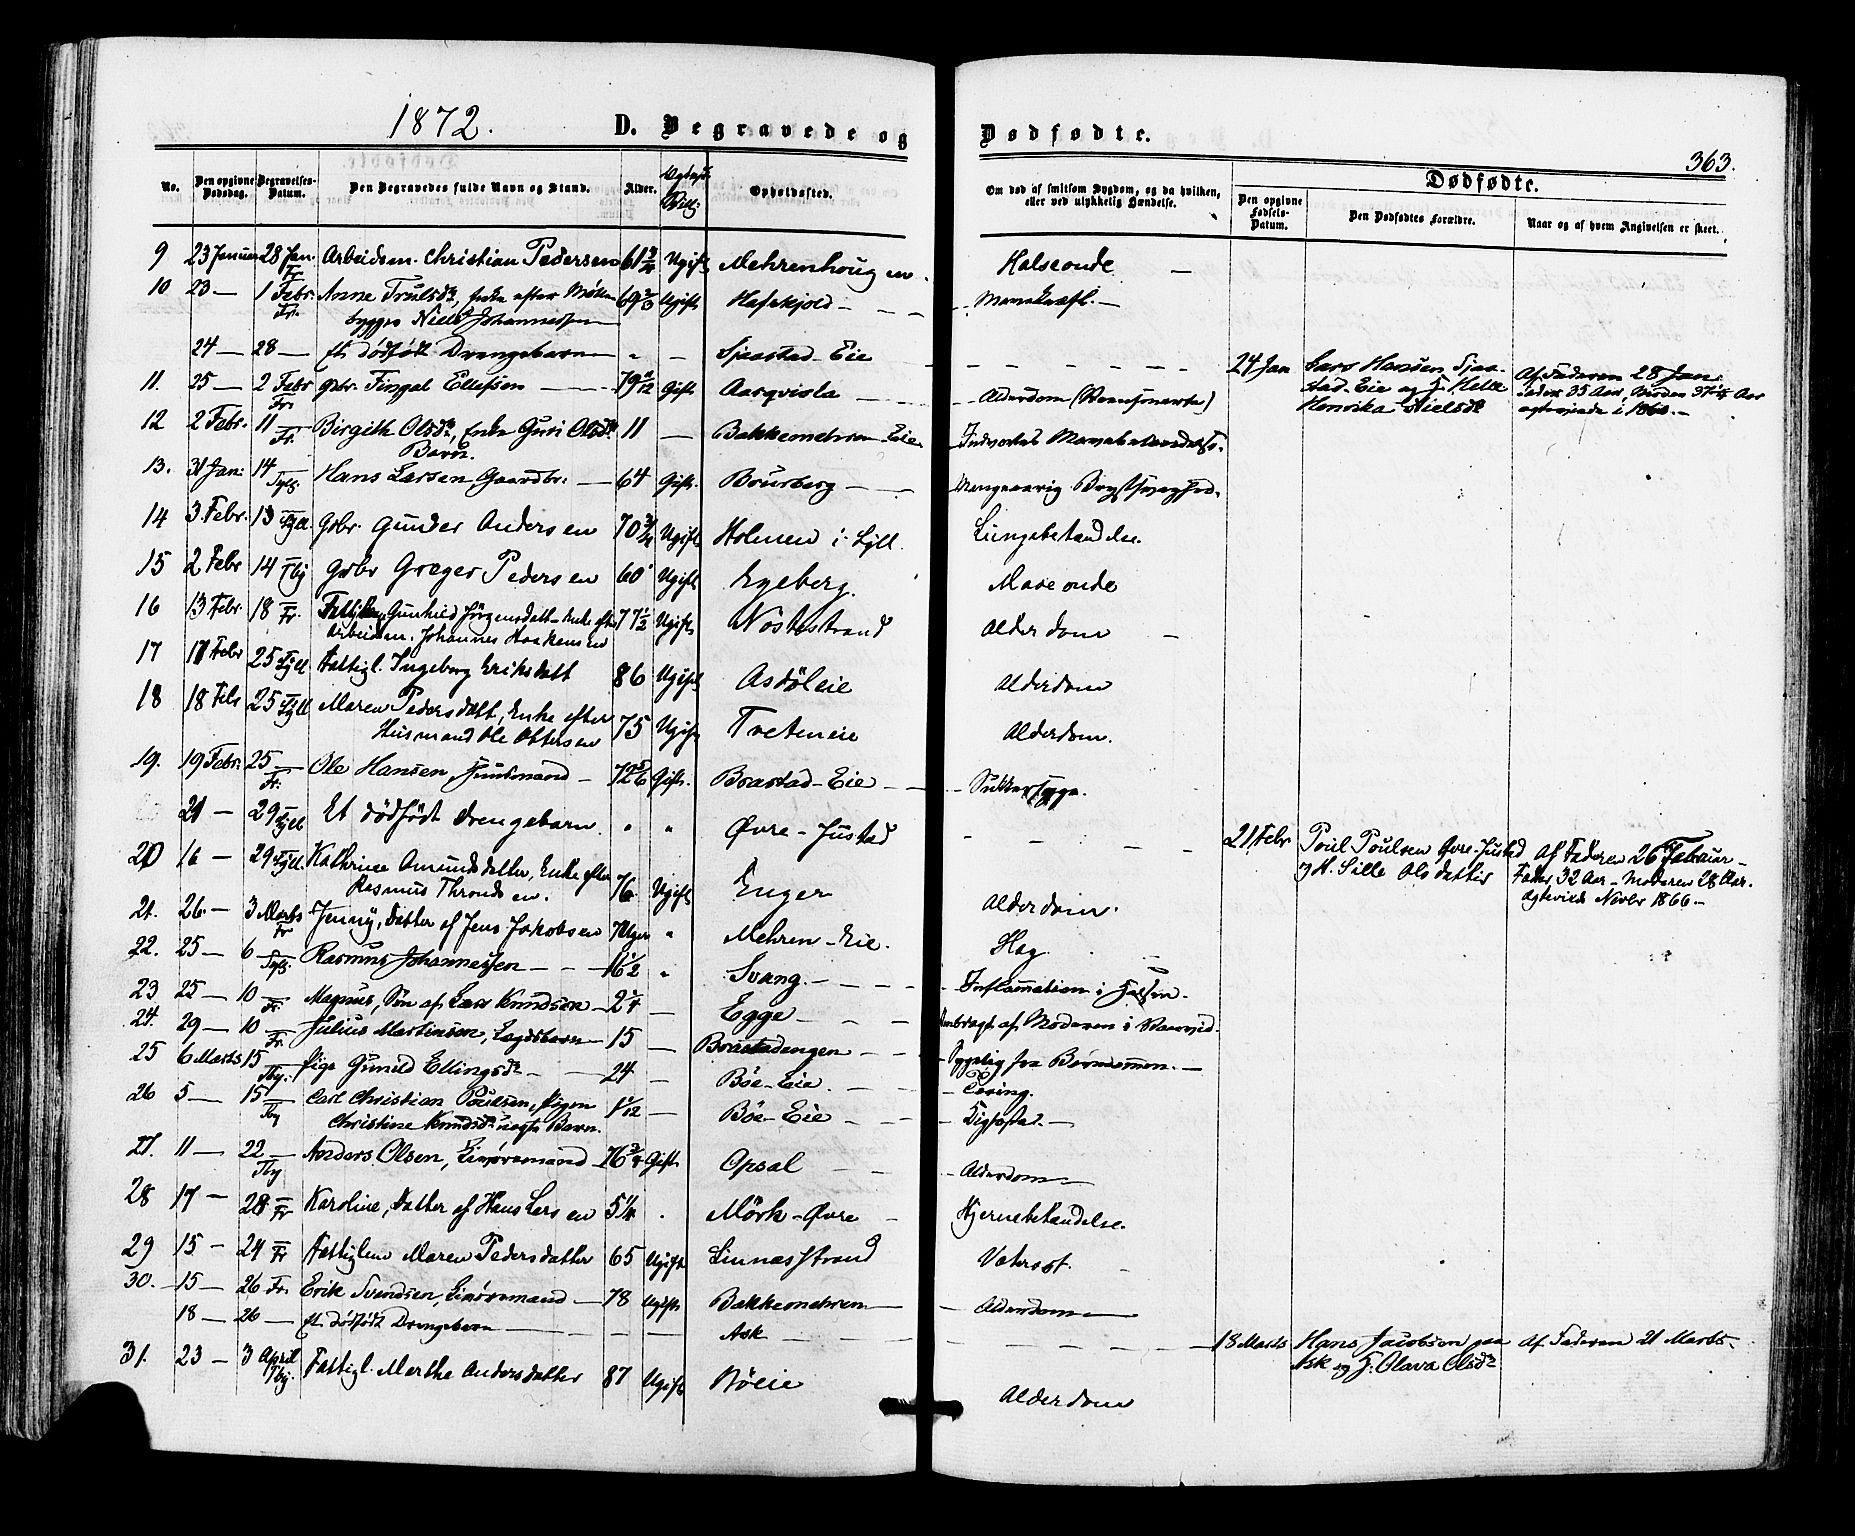 1872.
D. Begravede og Dødfødte.
363.
No. Den opgivne Dødsdag. Begravelses-Datum. Den Begravedes fulde Navn og Stand. Alder. Opholdssted. Om død af smitsom Sygdom, og da hvilken, eller ved ulykkelig Hændelse. Dødfødte. Den opgivne Fødsels-Datum. Den Dødfødtes Forældre. Naar og af hvem Angivelsen er skeet.
9 23 Januar 28 Jan. Fr. Arbeidsm. Christian Pedersen 61 3/4 Ugift Mehrenhoug Halseonde —
10 23 — 1 Febr. Fr. Anne Trulsdr, Enke efter Mølle-
bygger Niels Johannessen 69 2/3 Ugift Hafskjold —
24 — 28 — Et dødfødt Drengebarn " — Sjaastad-Eie 24 Jan Lars Hansen Sjaa-
stad-Eie og H. Helle
Henrika Nielsdr Af Faderen 28 Jan.
Fader 35 Aar, Moder 37 Aar
11. 25 — 2 Febr Fr. gbr. Fingal Ellefsen 79 11/12 Gift Aarqvisla — Alderdom (Pensjonert)
12 2 Febr. 11 Fr. Birgith Olsdr, Enke Guri Olsdr
Barn. 11 — Bakkemehren Eie
13. 31 Jan: 14 Sylg. Hans Larsen, Gaardbr. — 64 Gift. Bourberg — Mangeaarig Brystsvaghed.
14 3 Febr. 13 Syl. Gbr. Gunder Andersen 70 3/4 Ugift Holmen i Syll. Lungebetændelse.
15 2 Febr 14 Tby Gbr Greger Pedersen 60 Ugift Egeberg. Maveonde
16 13 Febr. 18 Fr. Fattiglem Gunhild Jørgensdatt. Enke efter
Arbeidsm. Johannes Haakensen 77 1/2 Ugift Nøstestrand Alderdom —
17 17 Febr 25 Syll Fattigl. Ingeborg Eriksdatt 86 Ugift Asdøleie Alderdom
18 18 Feb 25 Syll Maren Pedersdatt, Enke efter
Husmand Ole Ottersen 75 Ugift Treteneie Alderdom.
19. 19 Febr. 25 Fr. Ole Hansen, Huusmand — 72 5/6 Gift. Braastad-Eie Sukkersyge.
21 — 29 Syll Et dødfødt drengebarn. " " Øvre-Justad 21 Febr Poul Poulsen Øvre-Justad
og H. Sille Olsdatter Af Faderen 26 Februar —
Fader 32 Aar — Moderen 28 Aar.
Ægteviede Novbr 1866 —
20 16 — 29 Syll Kathrine Amundsdatter, Enke efter
Rasmus Throndsen. 76 Ugift Enger Alderdom.
21. 26. — 3 Marts Fr Jenny, Datter af Jens Jakobsen 7 Uger " Mehren-Eie.
22. 25 — 6 Sylg. Rasmus Johannessen — 16 1/2 " Svang. Inflammation i Halsen.
23 25 — 10 Fr. Magnus, Søn af Lars Knudsen — 2 1/4 — Egge — Ombragt af Moderen i
24. 29 — 10 Fr. Julius Martinsen, Lægdsbarn — 15 — Braastadengen — Sygelig fra Barndommen. —
25 6 Marts 15 Tby. Pige Gunild Ellingsdr — 24 — Böe-Eie. — Tæring.
26 5 — 15 Tby Carl Christian Poulsen, Pigen
Christine Knudsdr uægte Barn. 1 1/12 — Böe-Eie —
27. 11 — 22 Tby Anders Olsen, Livøremand 76 3/4 Gift. Opsal — Alderdom —
28 17 — 28 Fr Karoline, Datter af Hans Larsen 5 1/4 . Mörk-Øvre — Hjernebetændelse.
29 15 — 24 Fr Fattiglem Maren Pedersdatter 65 Ugift Linnesstrand Vatersot.
30. — 15 — 26 Fr. Erik Svendsen, Livøremand — 78 Ugift Bakkemehren — Alderdom —
18 — 26 — Et dødfødt Drengebarn — Ask 18 Marts Hans Jacobsen paa
Ask og H. Olava Olsdr Af Faderen 21 Marts.
31. 23 — 3 April Tby. Fattigl. Marthe Andersdatter 87 Ugift Böeie Alderdom